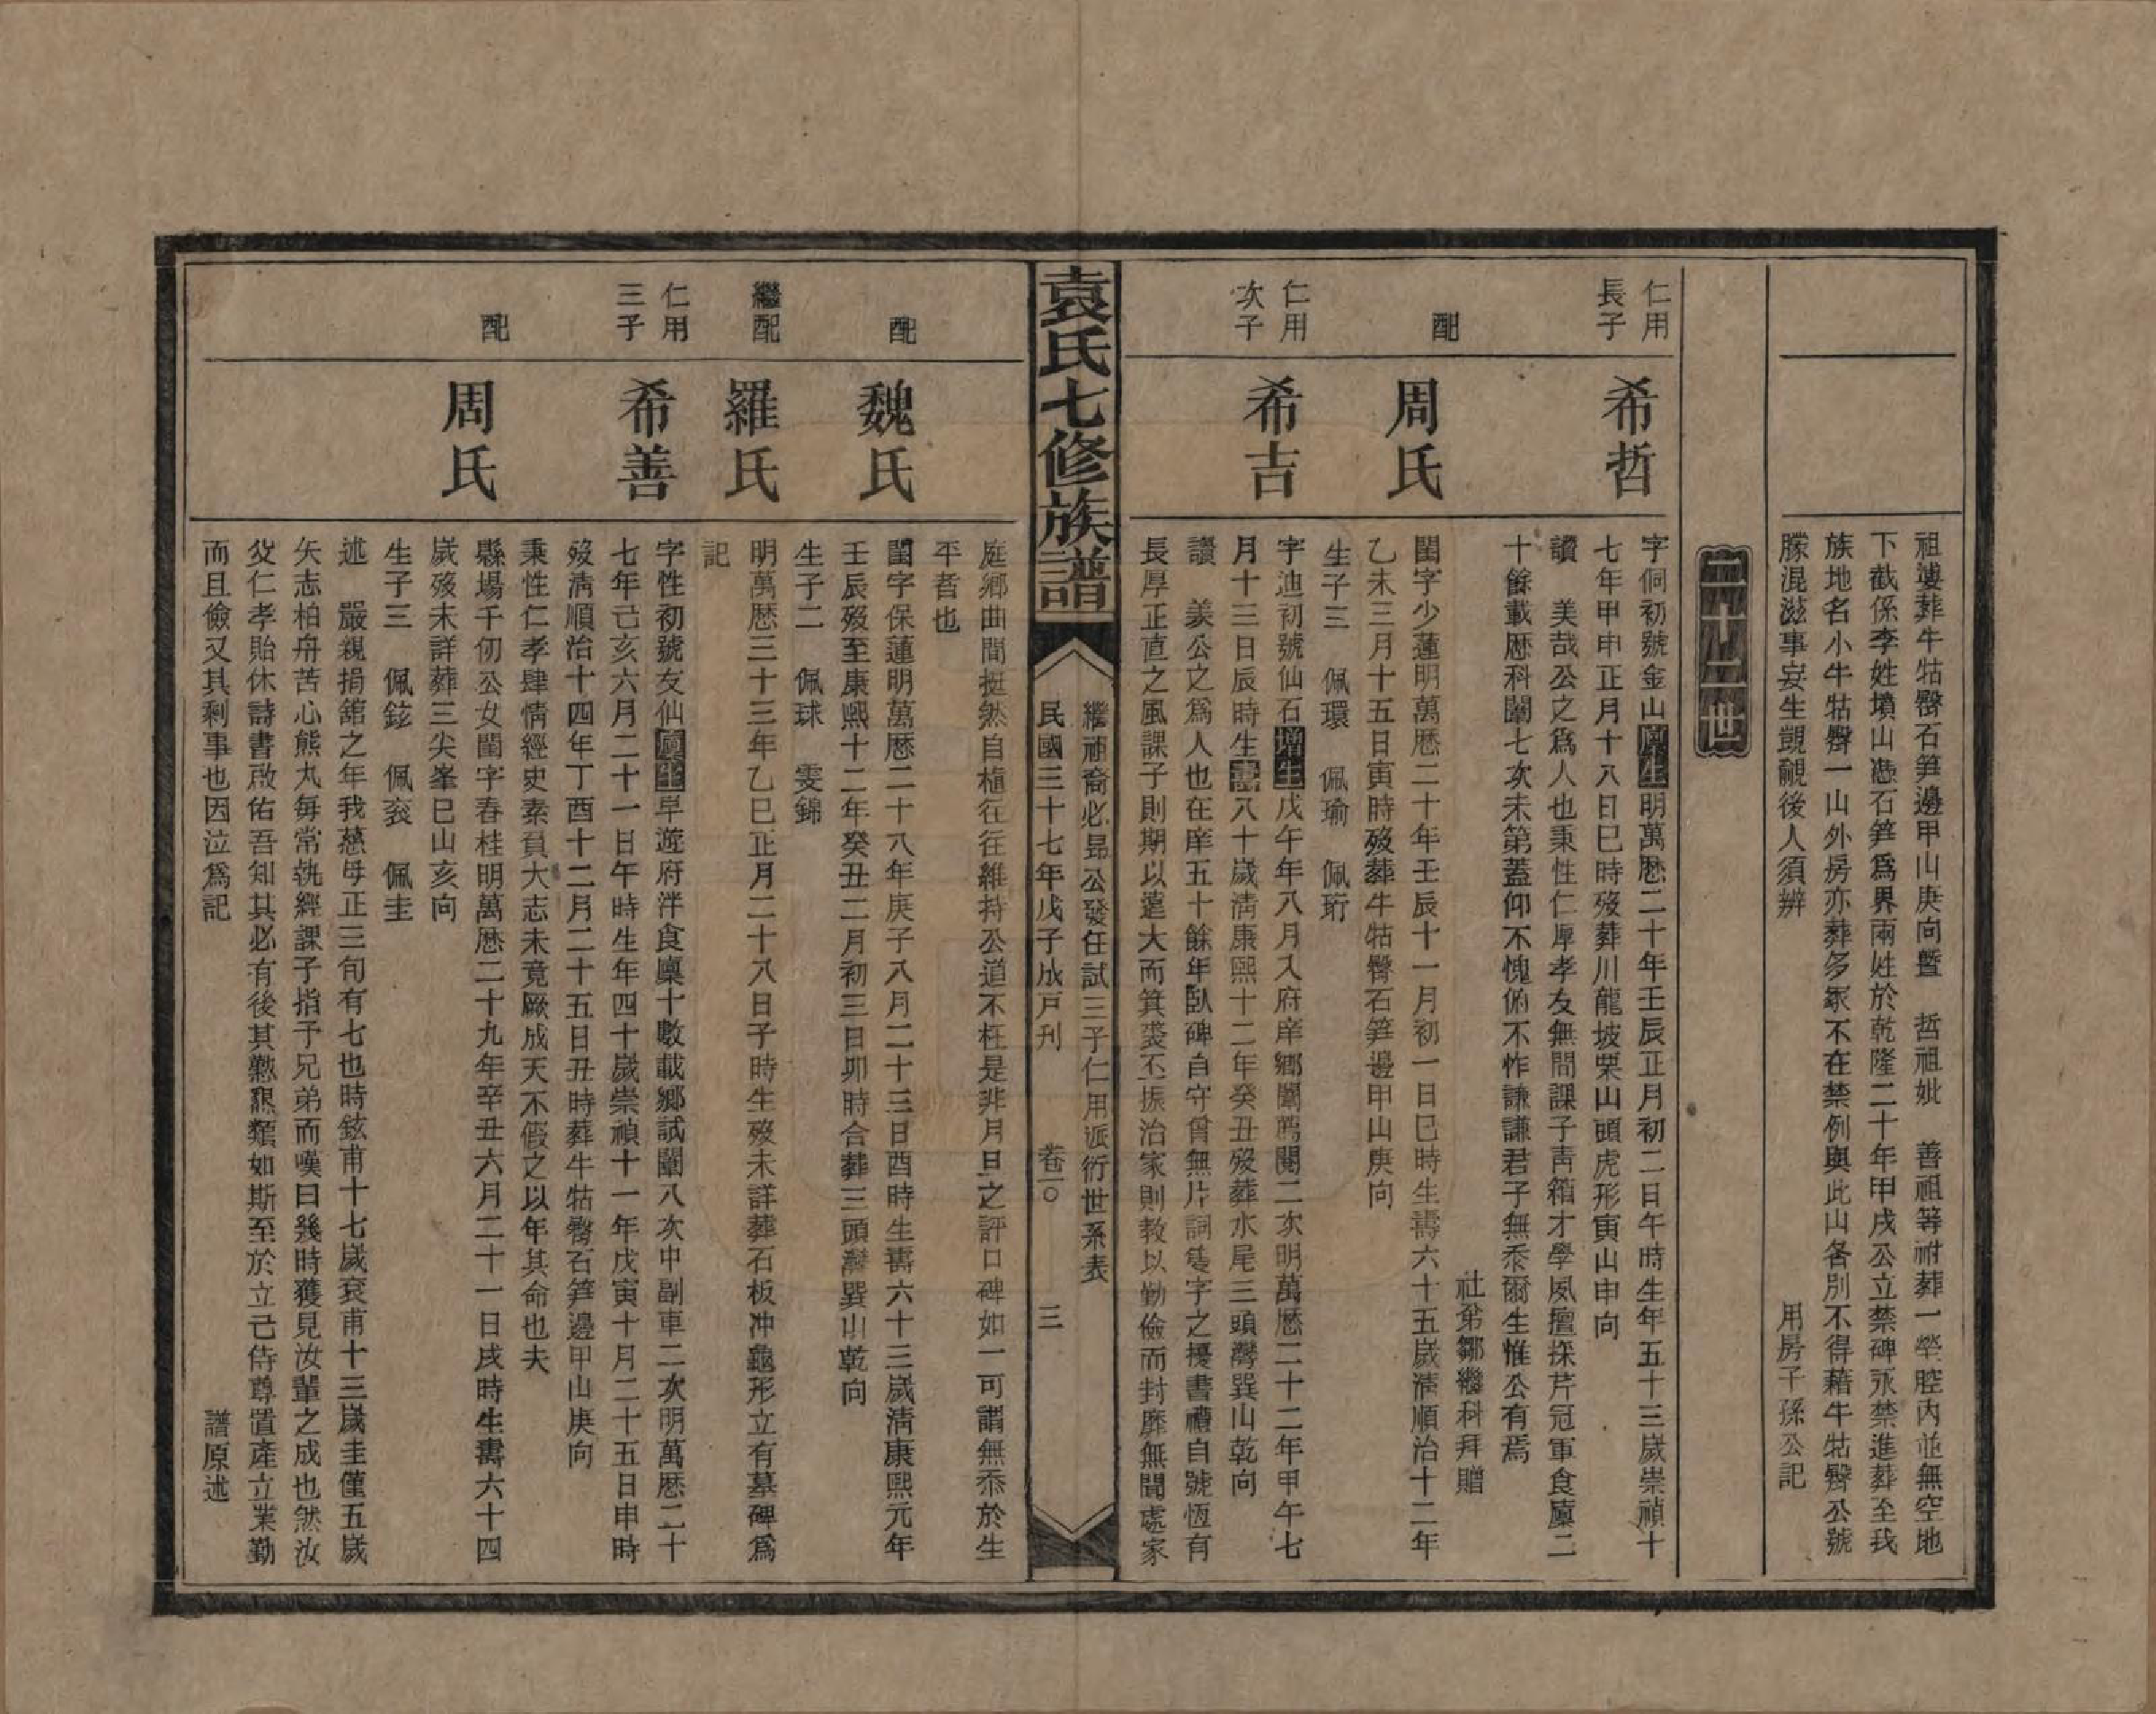 祖塋葬牛牯臀石笋邊甲山庚向暨　哲祖妣　善祖等祔葬一塋腔內並無空地
下截係李姓墳山憑石笋爲界兩姓於乾隆二十年甲戌公立禁碑永禁進葬至我
族地名小牛牯臀一山外房亦葬多冢不在禁例與此山各別不得藉牛牯臀公號
朦混滋事妄生覬覦後人須辨　用房子孫公記
二十二世
仁用
長子
希哲
字侗初號金山廩生明萬歷二十年壬辰正月初二日午時生年五十三歲崇禎十
七年甲申正月十八日巳時歿葬川龍坡栗山頭虎形寅山申向
讚　美哉公之爲人也秉性仁厚孝友無間課子靑箱才學風擅採芹冠軍食廩二
十餘載歷科闈七次未第蓋仰不愧俯不怍謙謙君子無忝爾生惟公有焉
社弟鄒繼科拜贈
配
周氏
閨字少蓮明萬歷二十年壬辰十一月初一日巳時生壽六十五歲淸順治十二年
乙未三月十五日寅時歿葬牛牯臀石笋邊甲山庚向
生子三　佩環　佩瑜　佩珩
仁用
次子
希吉
字迪初號仙石增生戊午年八月入府庠鄉闈鶚閱二次明萬歷二十二年甲午七
月十三日辰時生壽八十歲淸康熙十二年癸丑歿葬水尾三頭灣巽山乾向
讚　羨公之爲人也在庠五十餘年臥碑自守曾無片詞隻字之擾書禮自號恆有
長厚正直之風課子則期以遠大而箕裘丕振治家則教以勤儉而封靡無聞處家
袁氏七修族譜
繼禎裔必昻公發任試三子仁用派衍世系表
民國三十七年戊子成戸刊　卷二〇　三
庭鄉曲間挺然自植往往維持公道不枉是非月旦之評口碑如一可謂無忝於生
平者也
配
魏氏
閨字保蓮明萬歷二十八年庚子八月二十三日酉時生壽六十三歲淸康熙元年
壬辰歿至康熙十二年癸丑二月初三日卯時合葬三頭灣巽山乾向
生子二　佩球　雯錦
繼配
羅氏
明萬歷三十三年乙巳正月二十八日子時生歿未詳葬石板冲龜形立有墓碑爲
記
仁用
三子
希善
字性初號友仙廩生早遊府泮食廩十數載鄉試闈八次中副車二次明萬歷二十
七年己亥六月二十一日午時生年四十歲崇禎十一年戊寅十月二十五日申時
歿淸順治十四年丁酉十二月二十五日丑時葬牛牯臀石笋邊甲山庚向
秉性仁孝肆情經史素負大志未竟厥成天不假之以年其命也夫
配
周氏
縣塲千仞公女閨字春桂明萬歷二十九年辛丑六月二十一日戌時生壽六十四
歲歿未詳葬三尖峯巳山亥向
生子三　佩鉉　佩衮　佩圭
述　嚴親捐舘之年我慈母正三旬有七也時鉉甫十七歲衮甫十三歲圭僅五歲
矢志柏舟苦心熊丸每常執經課子指予兄弟而嘆曰幾時獲見汝輩之成也然汝
父仁孝貽休詩書啟佑吾知其必有後其懃懇類如斯至於立己侍尊置產立業勤
而且儉又其剩事也因泣爲記　譜原述